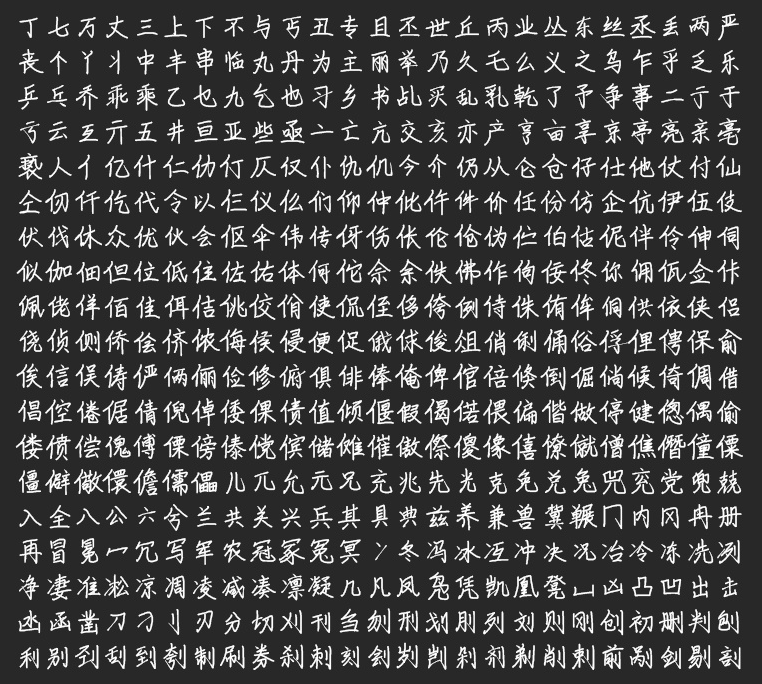 丁七万丈三上下不与丐丑专且丕世丘丙业丛东丝丞丢两严
丧个丫丬中丰串临丸丹为主丽举乃久乇么义之乌乍乎乏乐
乒乓乔乖乘乙乜九乞也习乡书乩买乱乳乾了予争事二亍于
亏云互亓五井亘亚些亟亠亡亢交亥亦产亨亩享京亭亮亲亳
亵人亻亿什仁仂仃仄仅仆仇仉今介仍从仑仓仔仕他仗付仙
仝仞仟仡代令以仨仪仫们仰仲仳仵件价任份仿企伉伊伍伎
伏伐休众优伙会伛伞伟传伢伤伥伦伧伪伫伯估伲伴伶伸伺
似伽佃但位低住佐佑体何佗佘余佚佛作佝佞佟你佣佤佥佧
佩佬佯佰佳佴佶佻佼佾使侃侄侈侉例侍侏侑侔侗供依侠侣
侥侦侧侨侩侪侬侮侯侵便促俄俅俊俎俏俐俑俗俘俚俜保俞
俟信俣俦俨俩俪俭修俯俱俳俸俺俾倌倍倏倒倔倘候倚倜借
倡倥倦倨倩倪倬倭倮债值倾偃假偈偌偎偏偕做停健偬偶偷
偻偾偿傀傅傈傍傣傥傧储傩催傲傺傻像僖僚僦僧僬僭僮僳
僵僻儆儇儋儒儡儿兀允元兄充兆先光克免兑兔兕兖党兜兢
入全八公六兮兰共关兴兵其具典兹养兼兽冀冁冂内冈冉册
再冒冕冖冗写军农冠冢冤冥冫冬冯冰冱冲决况冶冷冻冼冽
净凄准凇凉凋凌减凑凛凝几凡凤凫凭凯凰凳凵凶凸凹出击
凼函凿刀刁刂刃分切刈刊刍刎刑划刖列刘则刚创初删判刨
利别刭刮到刳制刷券刹刺刻刽刿剀剁剂剃削剌前剐剑剔剖